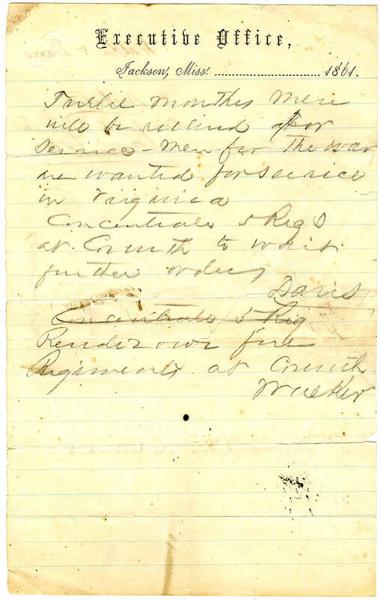 Executive Office,
Jackson, Miss. .......................... 1861.
Twelve months Men
will be received for
Service - Men for the war
are wanted for service
in Virginia
Concentrate 5 Regs
at Corinth to wait
further orders
Davis
Concentrate 5 Reg
Rendezvous five
Regiments at Corinth
Walker